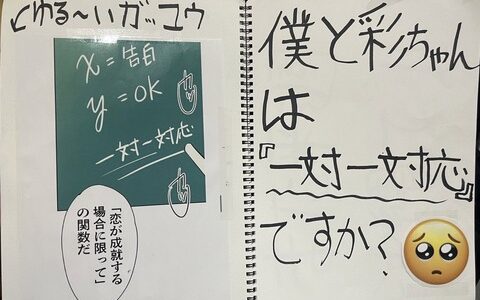 ゆる~いガッコウ
x=告白
y=OK
一対一対応
「恋が成就する
場合に限って」
の関数だ
僕と彩ちゃん
は
『一対一対応』
ですか?